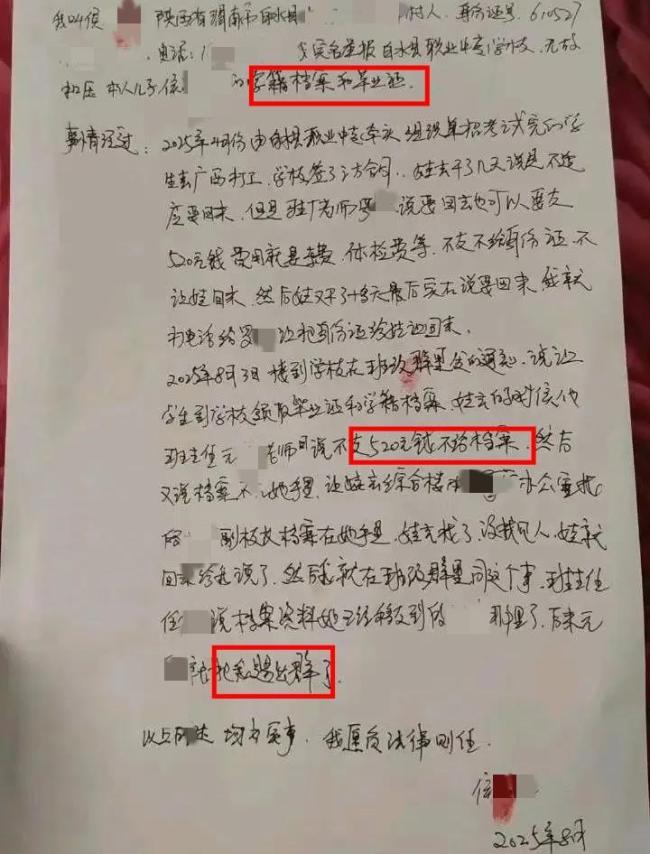 我叫侯 陕西省渭南市白水县 村人 身份证号 610527
电话:1 实名举报 白水县职业中专学校,无故
扣压本人儿子侯 的学籍档案和毕业证.
事情经过:2025年4月份由白水县职业中专牵头 组织单招考试完的学
生去广西打工,学校签了三方合同,娃去干了几天说是不适
应要回来,但是驻厂老师 说要回去也可以要交
520元钱 费用就是车费、体检费等,不交不给身份证、不
让娃回来,然后娃又干了十多天最后实在说要回来 我就
打电话给罗 让把身份证给娃让回来.
2025年8月3日 接到学校在班级群里发的通知,说让
学生到学校领取毕业证和学籍档案 娃去的时候他
班主任亢 老师说不交520元钱不给档案,然后
又说档案不 她手里,让娃去综合楼 办公室找
的 副校长档案在她手里,娃去找了没找见人,娃就
回来给我说了,然后我就在班级群里问这个事,班主任
任 说档案资料她已经移交到的 那里了,后来亢
把我踢出群了
以上所述 均为实事,我愿负法律则任.
侯
2025年8月